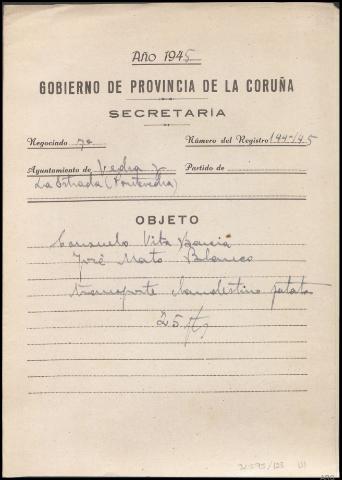 Año 1945
GOBIERNO DE PROVINCIA DE LA CORUÑA
SECRETARÍA
Negociado 7º Número del Registro 144-145
Ayuntamiento de Vedra y Partido de
La Estrada (Pontevedra)
OBJETO
Consuelo Vita García
José Mato Blanco
transporte clandestino patata
25 pts